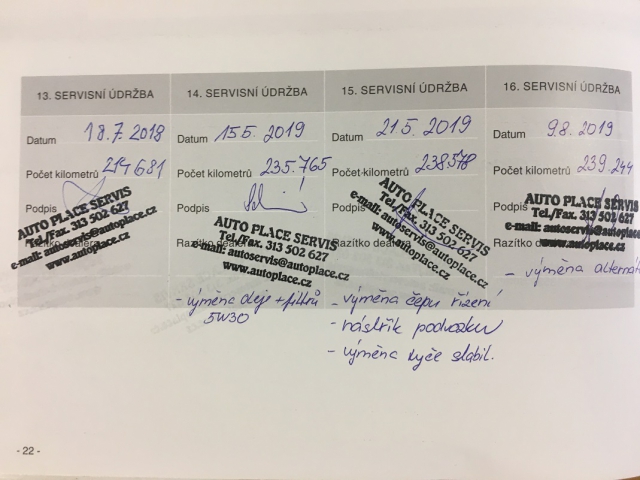 13. SERVISNÍ ÚDRŽBA
Datum 18.7.2018
Počet kilometrů 214681
Podpis
Razítko dealera
AUTO PLACE SERVIS
Tel./Fax. 313 502 627
e-mail: autoservis@autoplace.cz
www.autoplace.cz
14. SERVISNÍ ÚDRŽBA
Datum 15.5. 2019
Počet kilometrů 235.765
Podpis
Razítko
AUTO PLACE SERVIS
Tel./Fax. 313 502 627
e-mail: autoservis@autoplace.cz
www.autoplace.cz
- výměna oleje + filtrů
5W30
15. SERVISNÍ ÚDRŽBA
Datum 21.5. 2019
Počet kilometrů 238.578
Podpis
Razítko dealera
AUTO PLACE SERVIS
Tel./Fax. 313 502 627
e-mail: autoservis@autoplace.cz
www.autoplace.cz
- výměna čepu řízení
- nástřik podvozku
- výměna tyče stabil.
16. SERVISNÍ ÚDRŽBA
Datum 9.8. 2019
Počet kilometrů 239.244
Podpis
Razítko
AUTO PLACE
Tel./Fax. 313 502
e-mail: autoservis
www.autoplace
- výměna alternát
- 22 -